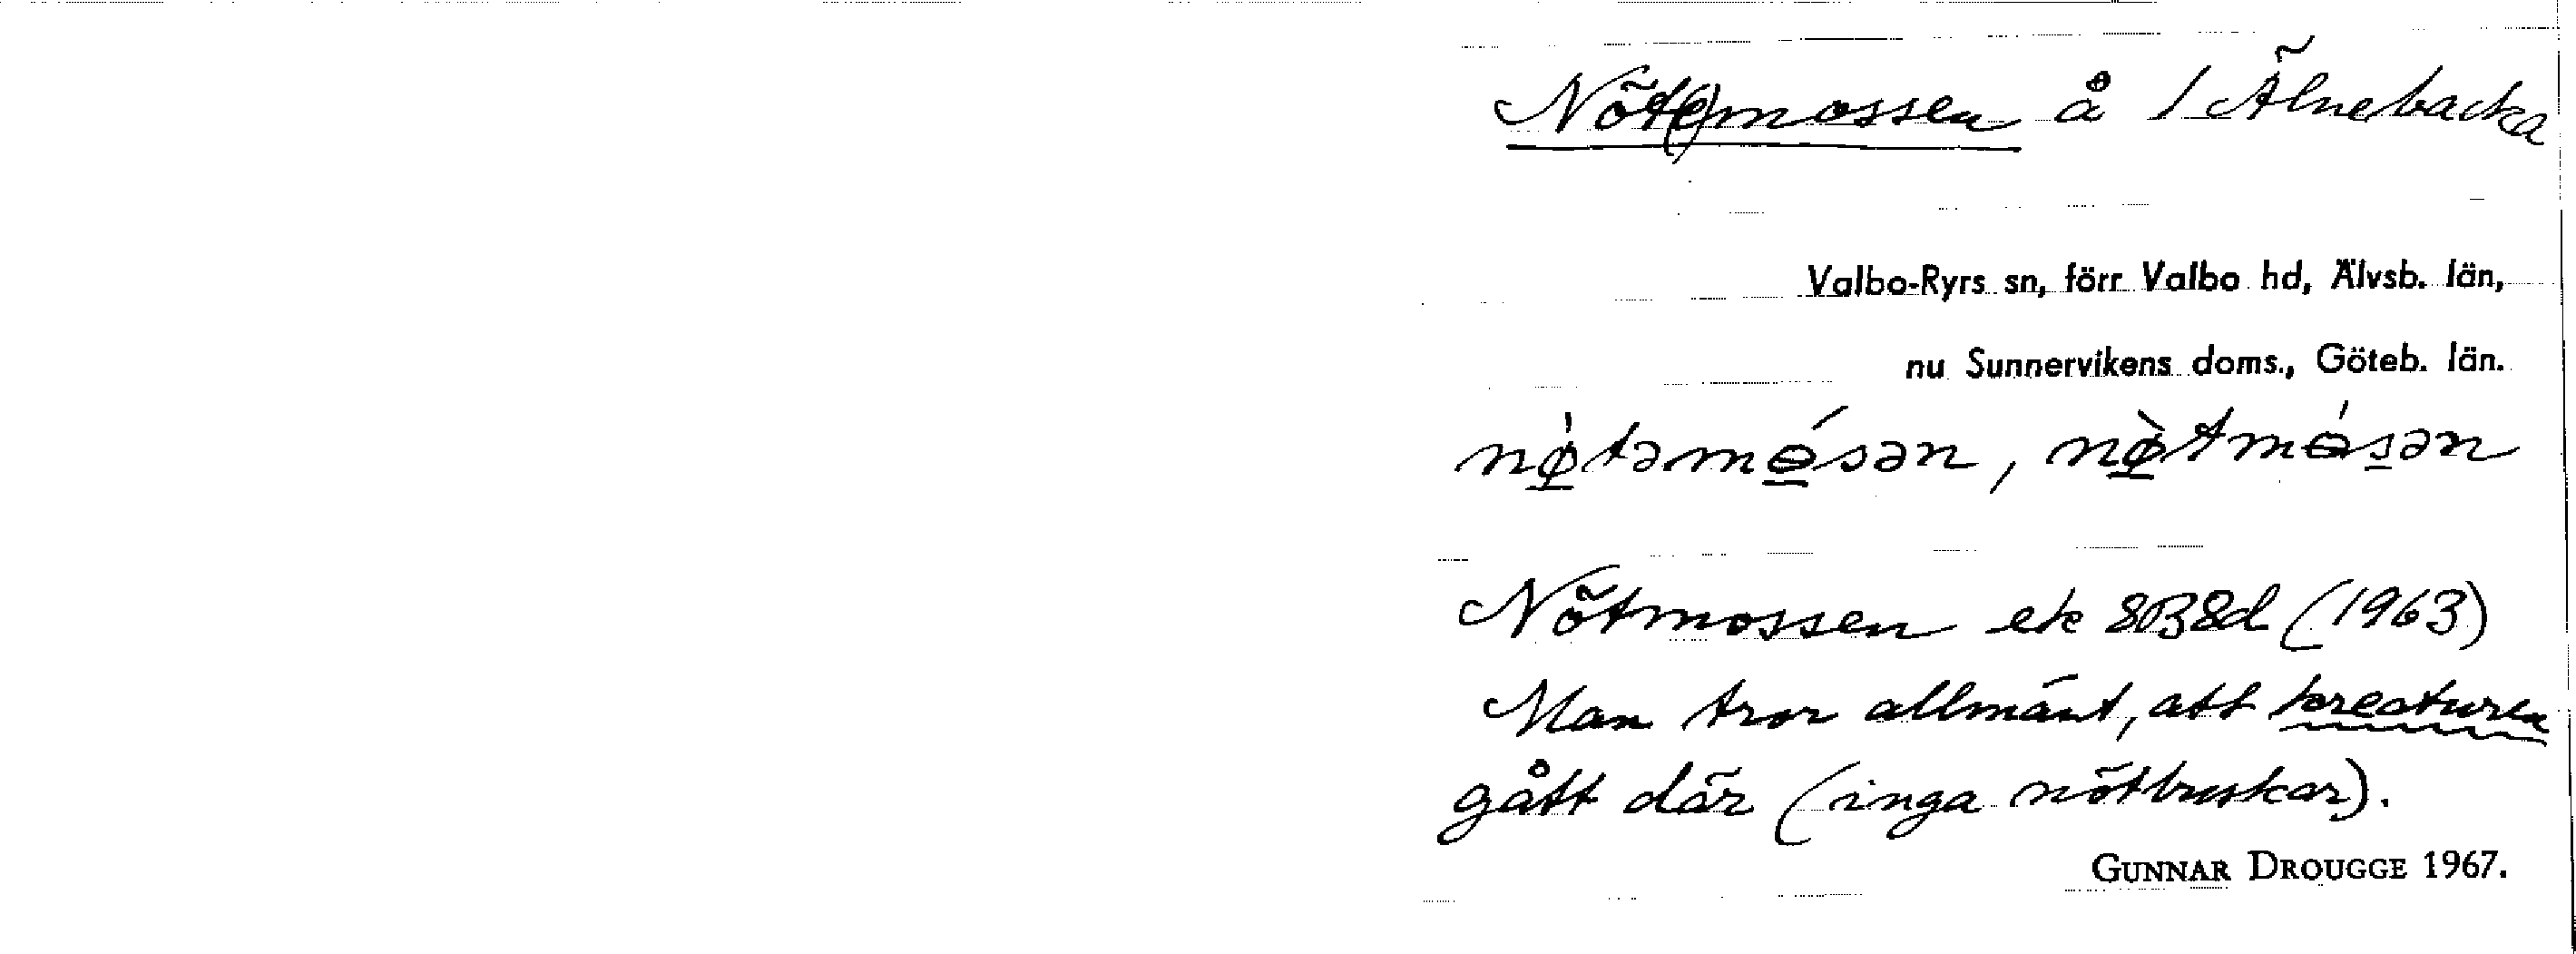 Nöt(e)mossen å 1 Älnebacka
Valbo-Ryrs sn, förr Valbo hd, Älvsb. län,
nu Sunnervikens doms., Göteb. län.
nø̀təmɵ́sən, nø̀tmɵ́sən
Nötmossen ek 8B8d (1963)
Man tror allmänt, att kreaturen
gått där (inga nötbuskar).
GUNNAR DROUGGE 1967.